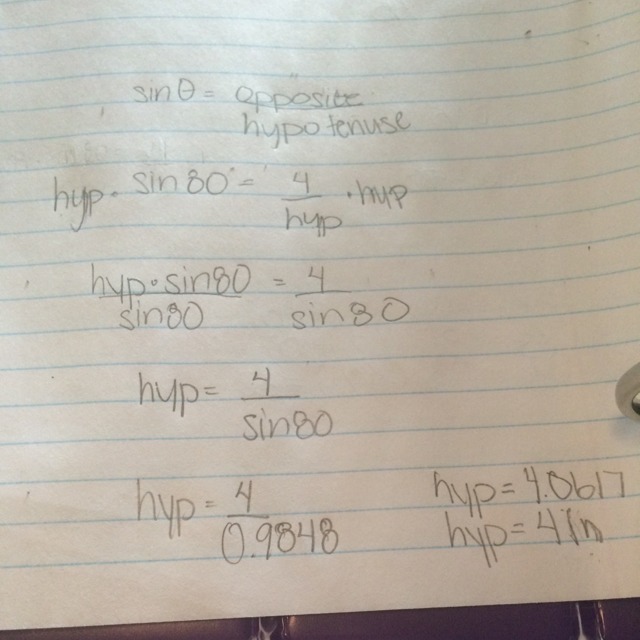 sinθ = opposite
hypotenuse
hyp · sin80° = 4/hyp · hyp
hyp·sin80/sin80 = 4/sin80
hyp = 4/sin80
hyp = 4/0.9848
hyp = 4.0617
hyp = 4in